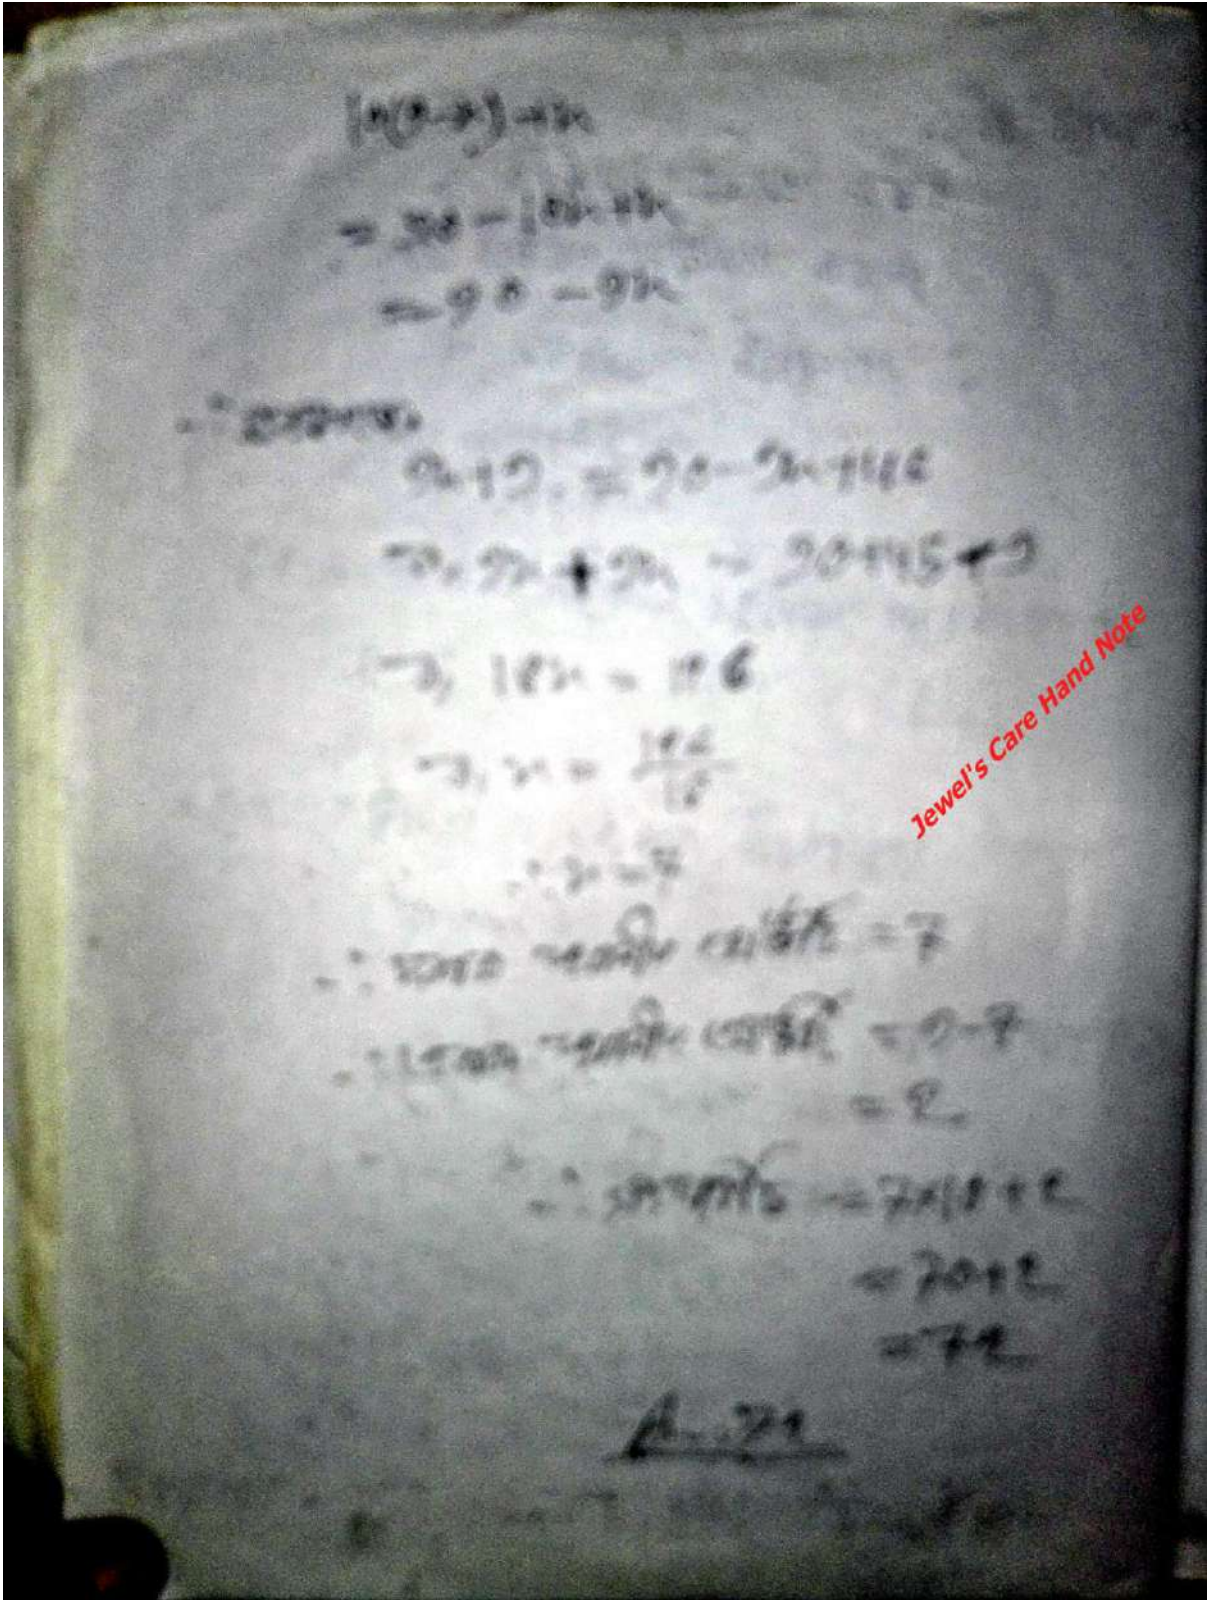 10(9-x)+x
= 90-10x+x
= 90-9x
∴ প্রশ্নমতে,
9x+9 = 90-9x+45
⇒, 9x+9x = 90+45-9
⇒, 18x = 126
⇒, x = 126/18
∴ x = 7
∴ দশক স্থানীয় অংকটি = 7
∴ একক স্থানীয় অংকটি = 9-7
= 2
∴ সংখ্যাটি = 7×10+2
= 70+2
= 72
A- 72
Jewel's Care Hand Note